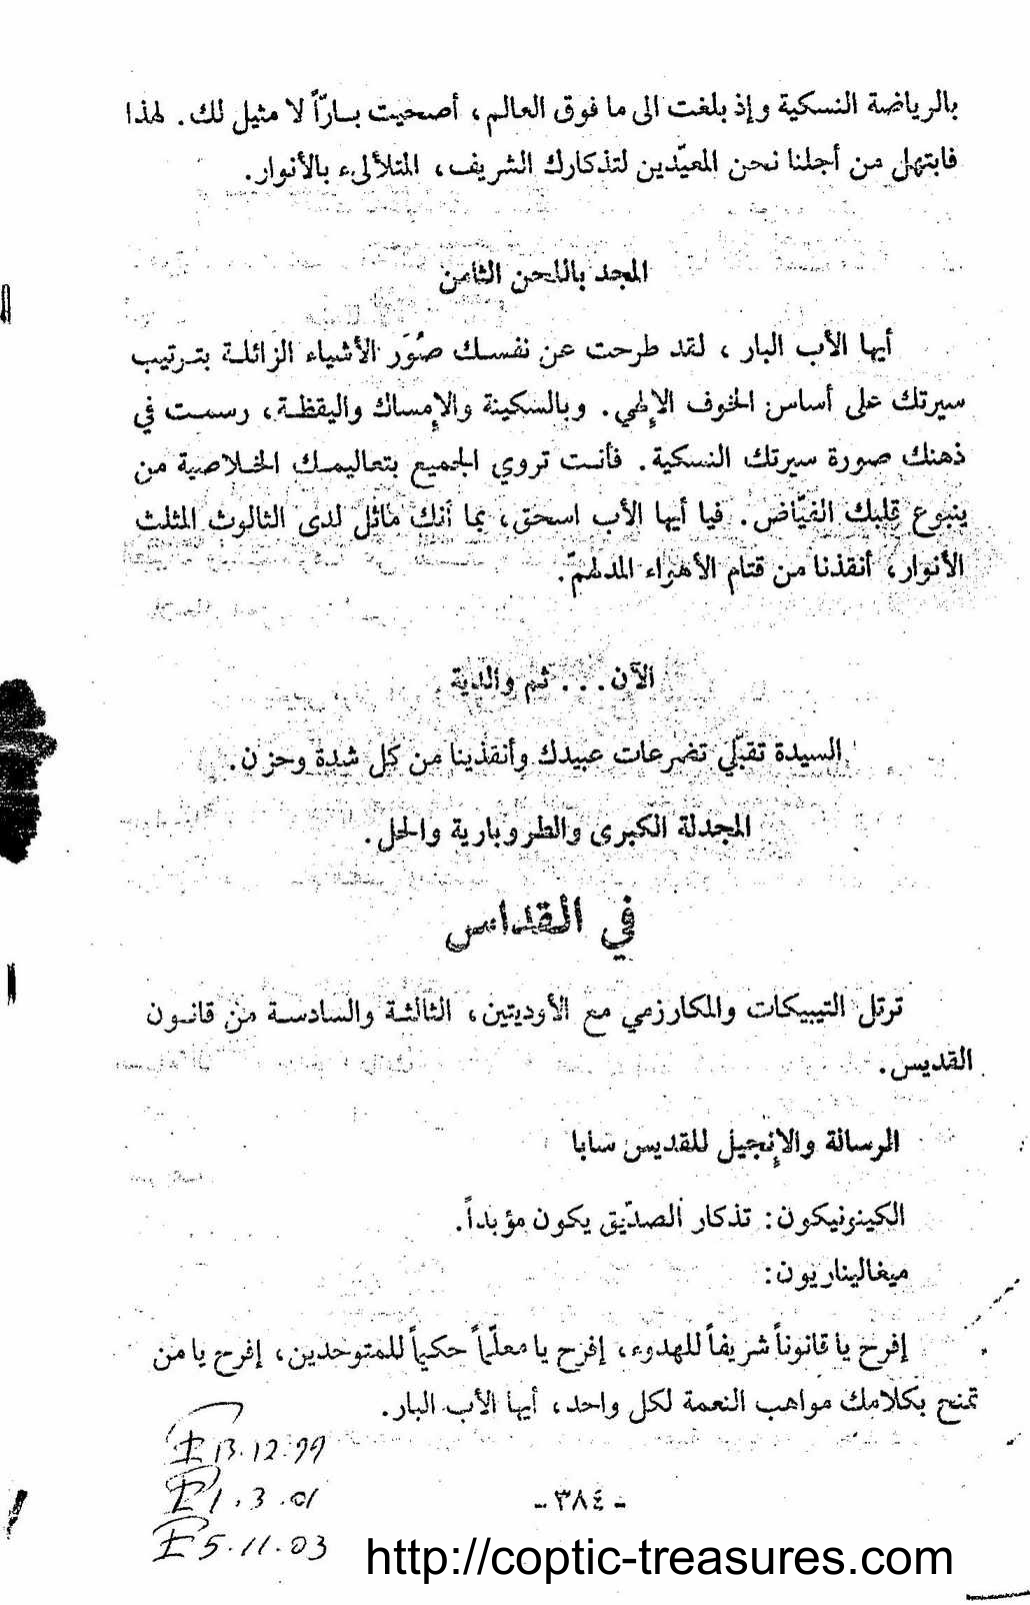 بالرياضة النسكية وإذ بلغت الى ما فوق العالم، أصحيت بـارّاً لا مثيل لك. لهذا
فابتهل من أجلنا نحن المعيّدين لتذكارك الشريف، المتلألىء بالأنوار.
المجد باللحن الثامن
أيها الأب البار، لقد طرحت عن نفسك صُوَر الأشياء الزائلة بترتيب
سيرتك على أساس الخوف الإلهي. وبالسكينة والإمساك واليقظة، رسمت في
ذهنك صورة سيرتك النسكية. فأنت تروي الجميع بتعاليمك الخلاصية من
ينبوع قلبك الفيّاض. فيا أيها الأب اسحق، بما أنك ماثل لدى الثالوث المثلث
الأنوار، أنقذنا من قتام الأهواء المدلهمّ.
الآن... ثم والدية
السيدة تقبّلي تضرعات عبيدك وأنقذينا من كل شدة وحزن.
المجدلة الكبرى والطروبارية والحل.
في القداس
ترتل التيبيكات والمكارزمي مع الأوديتين، الثالثة والسادسة من قانون
القديس.
الرسالة والإنجيل للقديس سابا
الكينونيكون: تذكار الصدّيق يكون مؤبداً.
ميغاليناريون:
إفرح يا قانوناً شريفاً للهدوء، إفرح يا معلّماً حكيماً للمتوحدين، إفرح يا من
تمنح بكلامك مواهب النعمة لكل واحد، أيها الأب البار.
I 13.12.99
I 1.3.01
I 5.11.03
- ٣٨٤ -
http://coptic-treasures.com